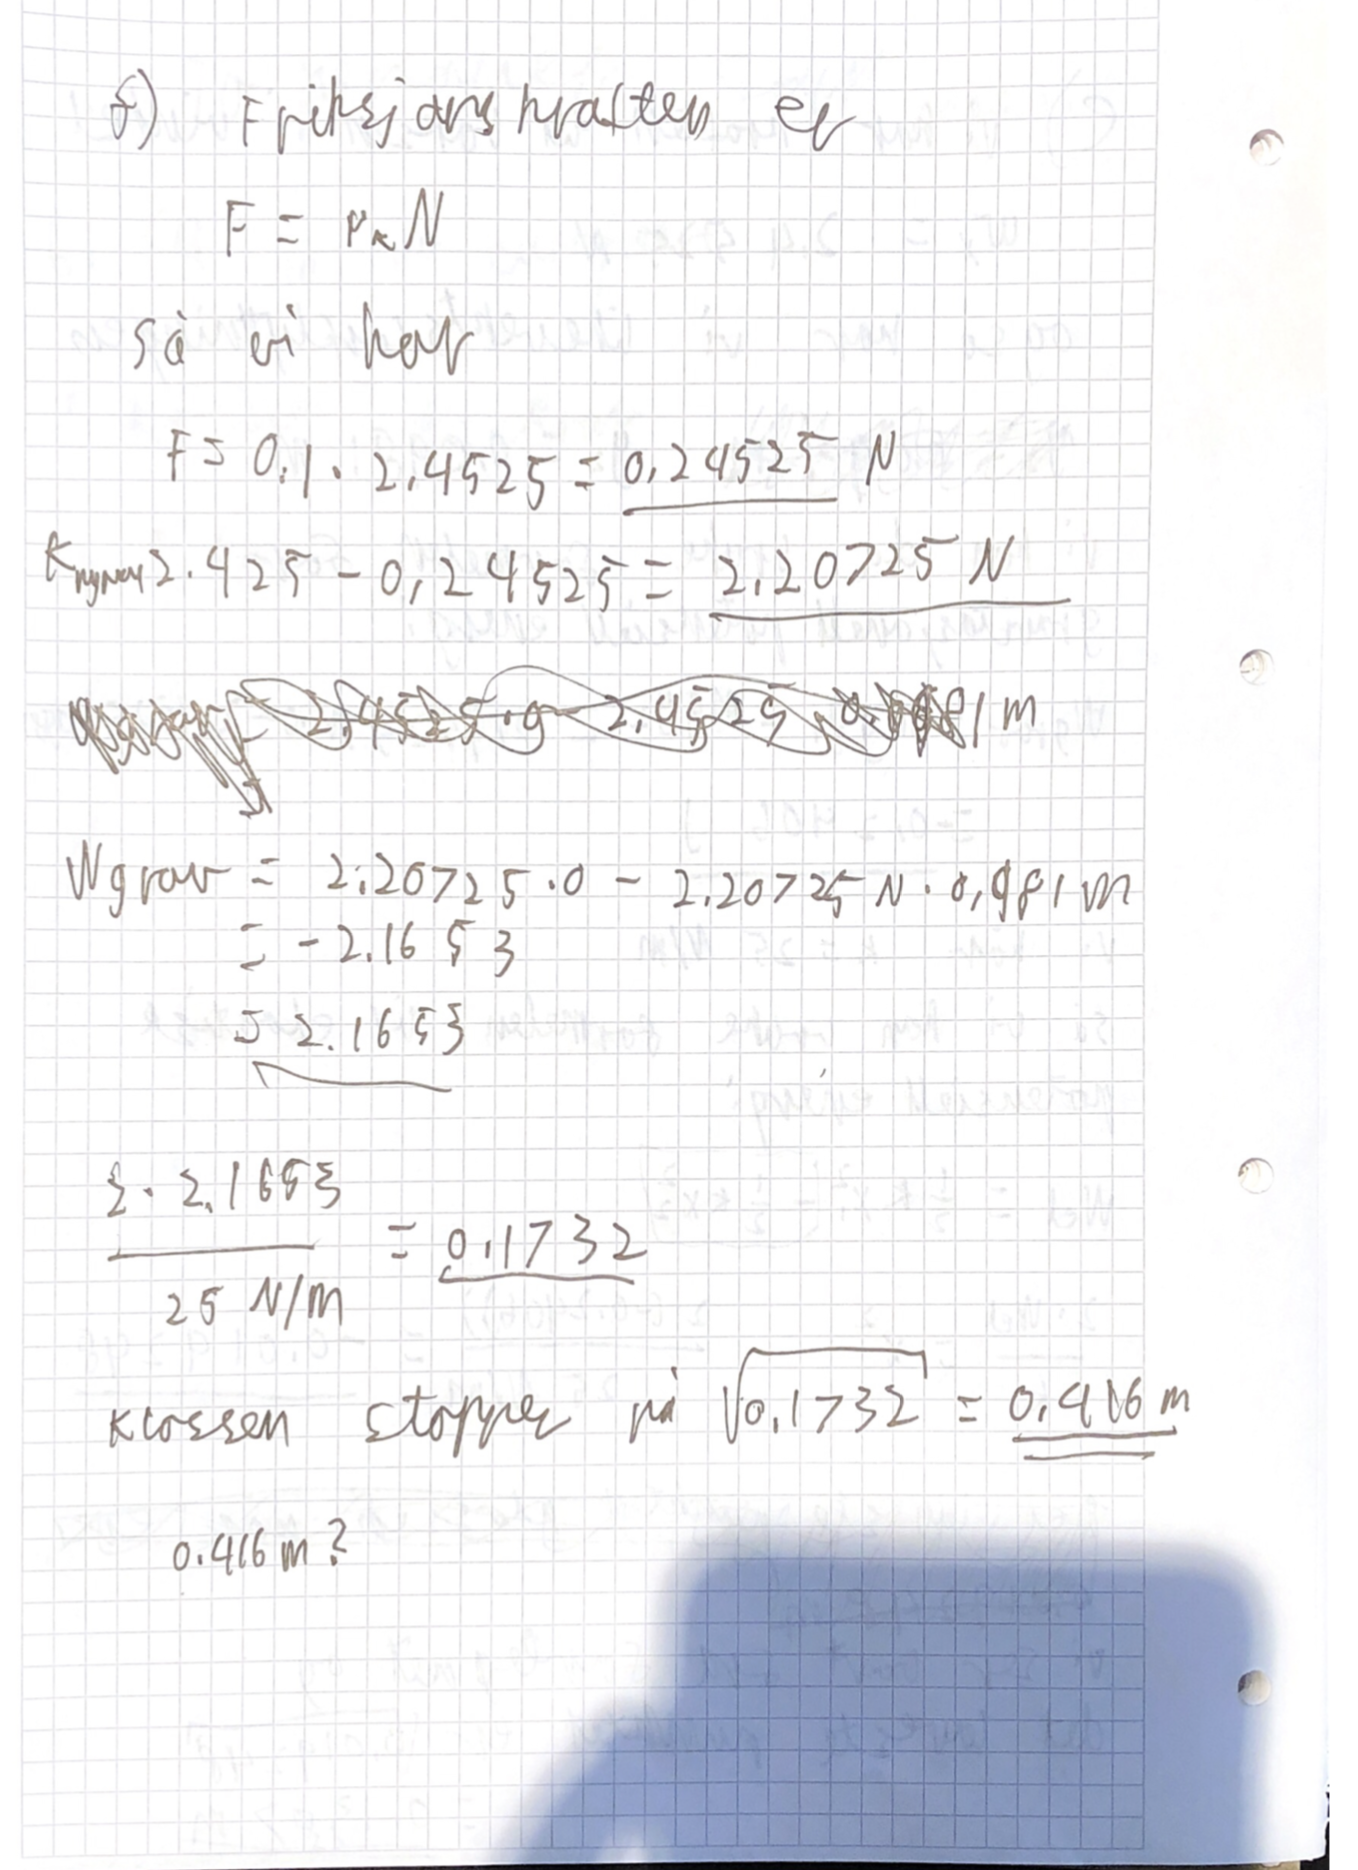 f) Friksjonskraften er
F = μₖN
så vi har
F = 0.1 · 2,4525 = 0,24525 N
2.425 - 0,24525 = 2.20725 N
Wgrav = 2.20725 · 0 - 2.20725 N · 0,981 m
= -2.1653
= 2.1653
2 · 2.1653
= 0,1732
25 N/m
Klossen stopper på √0.1732 = 0,416 m
0.416 m?